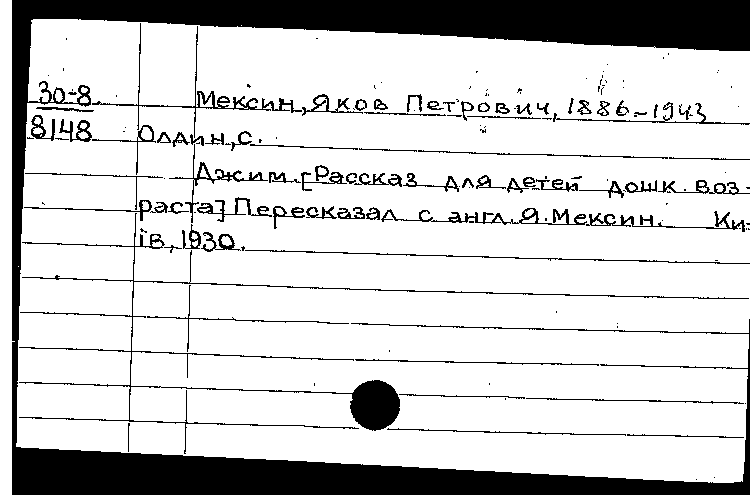 30-8
8148
Мексин, Яков Петрович, 1886-1943
Олдин, с.
Джим. [Рассказ для детей дошк. воз-
раста] Пересказал с англ. Я. Мексин. Ки-
їв, 1930.